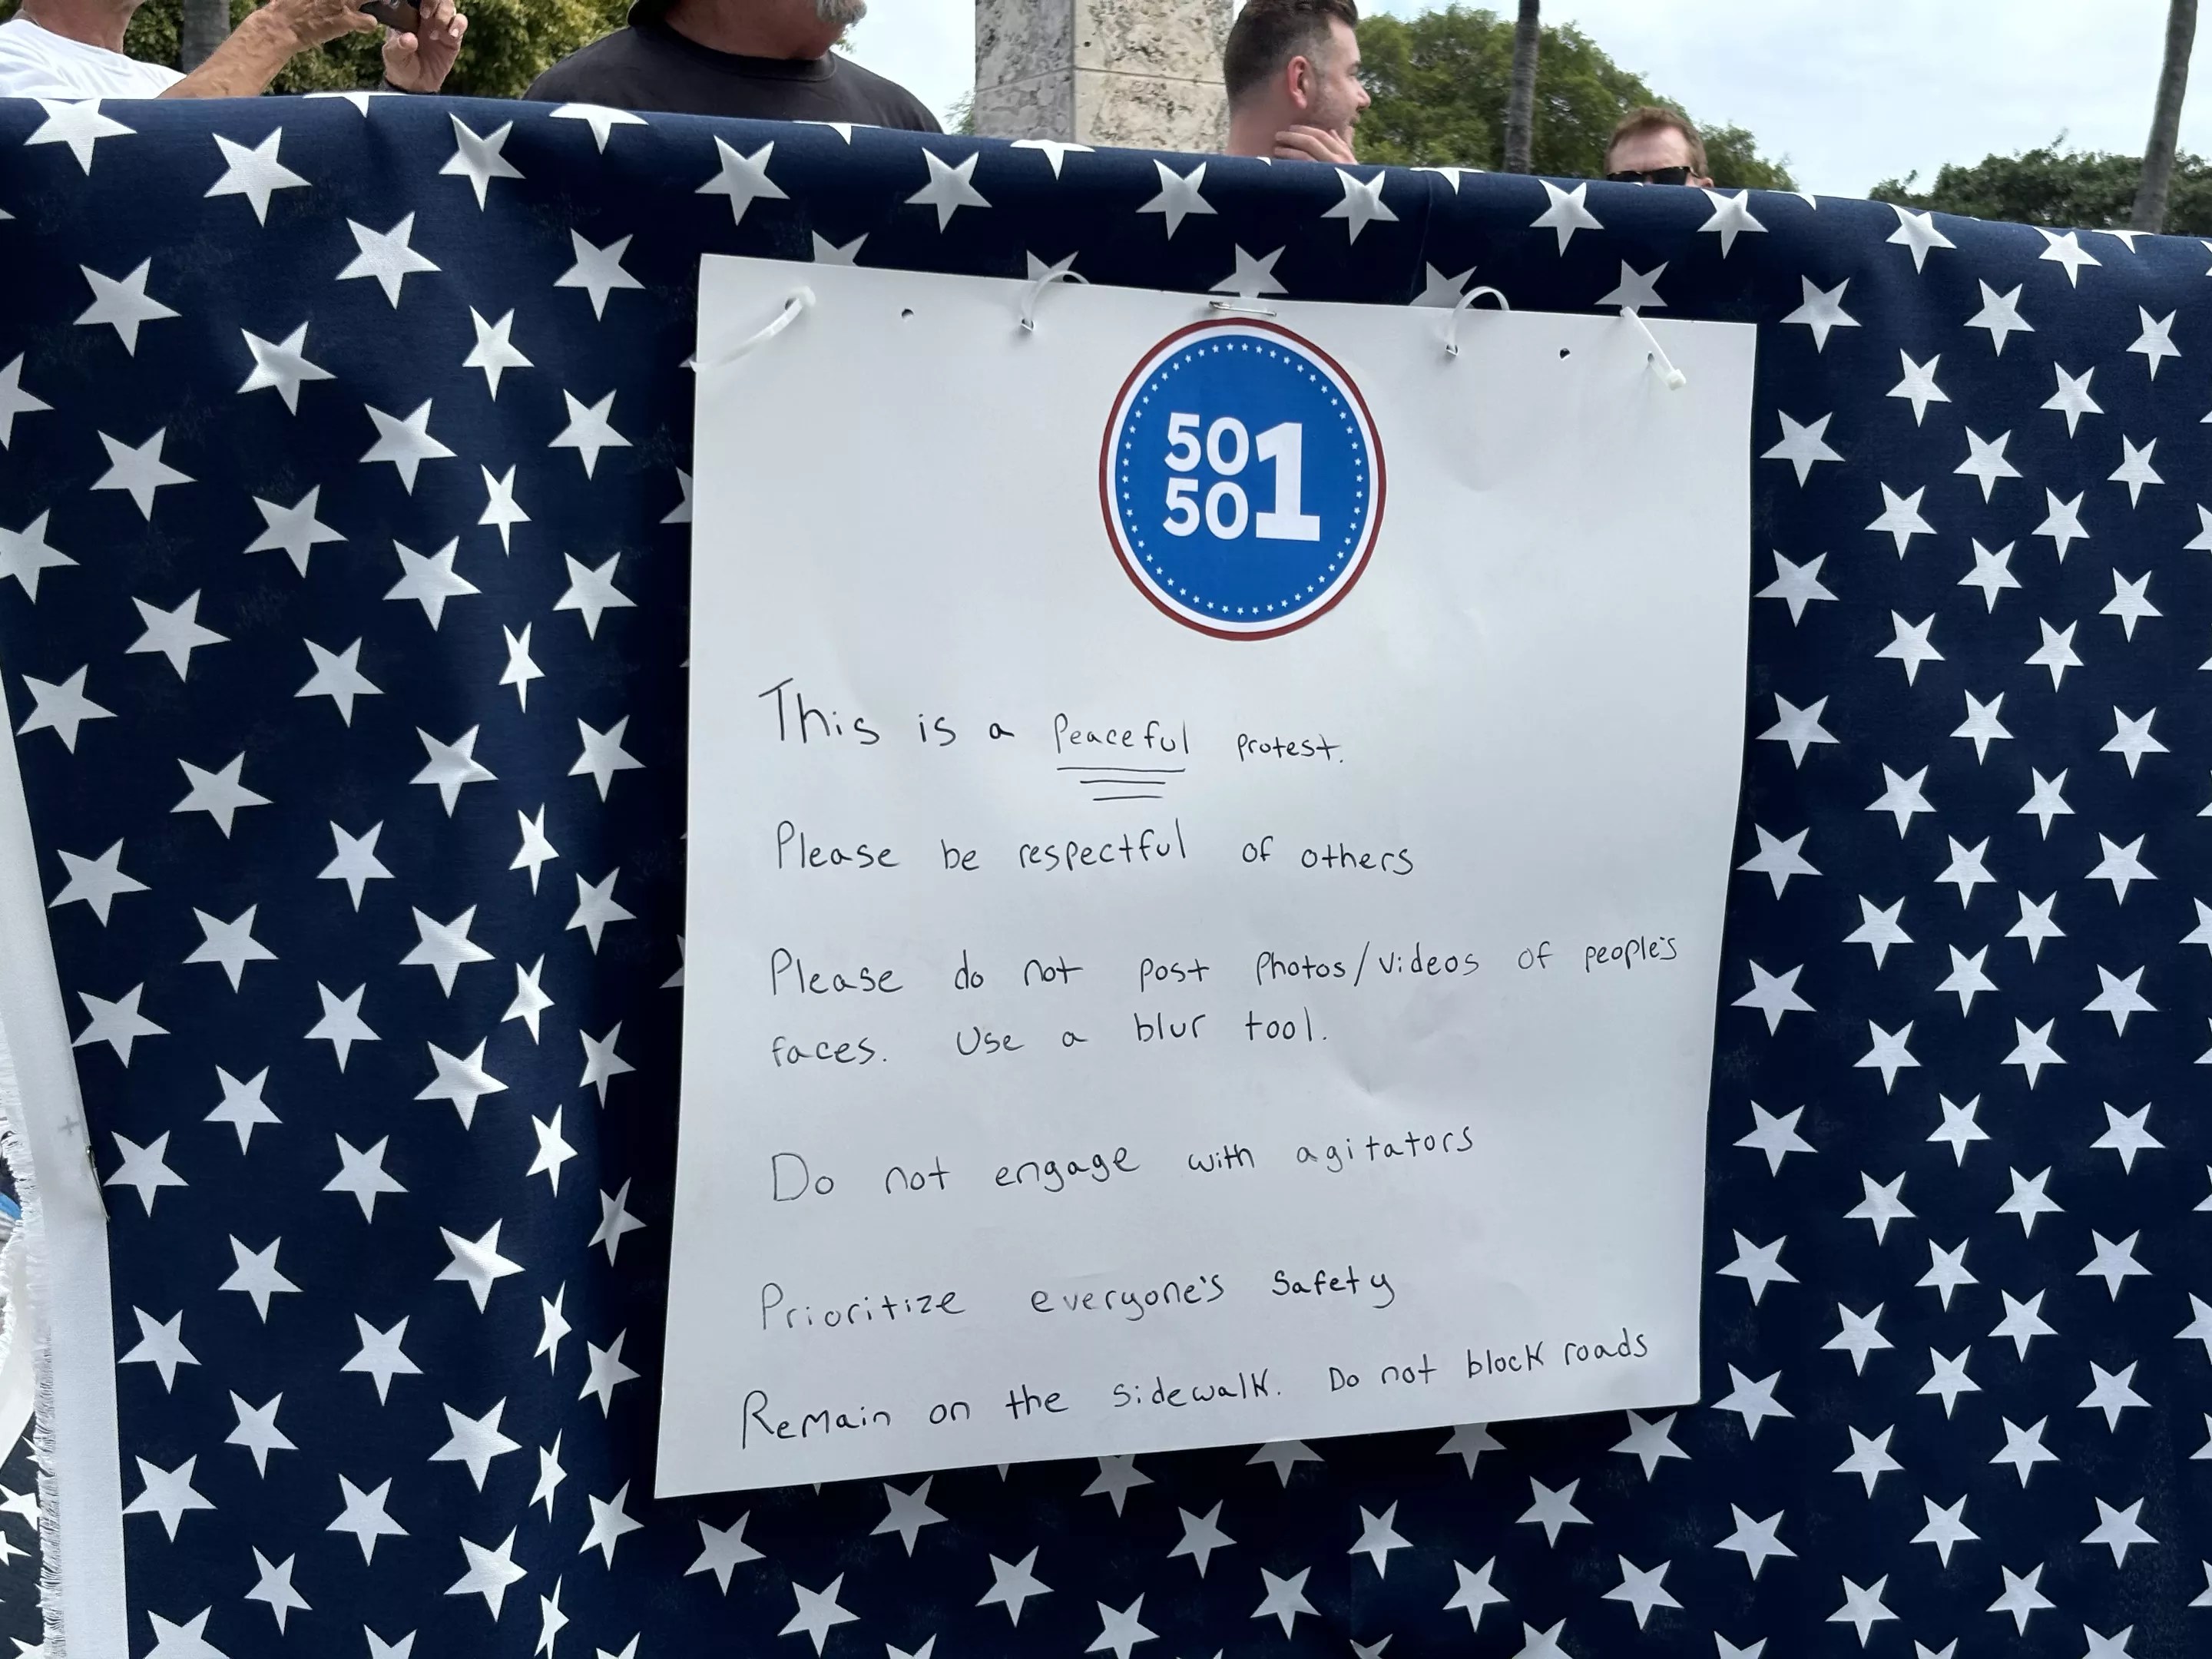 50
50
1
This is a Peaceful protest.
Please be respectful of others
Please do not post photos/videos of people's
faces. Use a blur tool.
Do not engage with agitators
Prioritize everyone's Safety
Remain on the sidewalk. Do not block roads